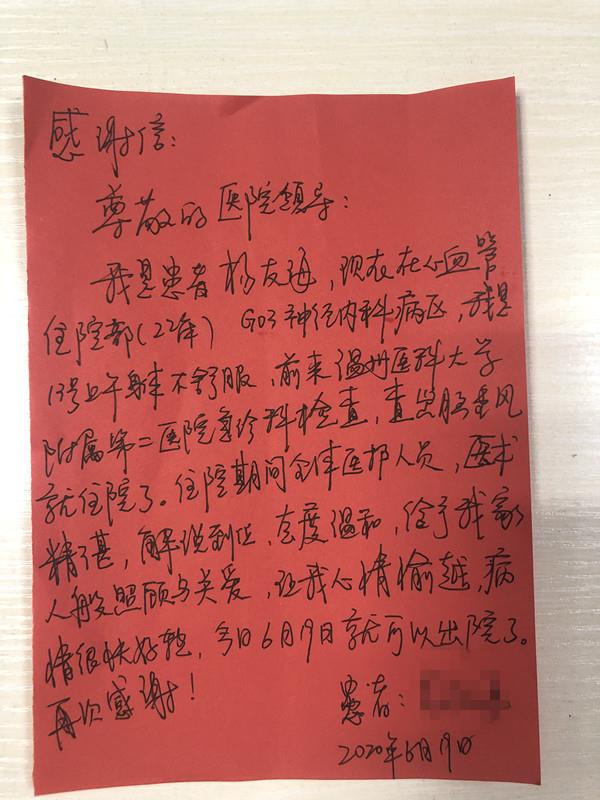 感谢信：
尊敬的医院领导：
我是患者杨友海，现在在心血管
住院部(22库) G03神经内科病区，我是
13号上午身体不舒服，前来温州医科大学
附属第二医院急诊科检查，查出脑中风
就住院了。住院期间全体医护人员，医术
精湛，解说到位，态度温和，给予我家
人般照顾与关爱，让我心情愉越，病
情很快好转，今日6月19日就可以出院了。
再次感谢！
患者：
2020年6月19日